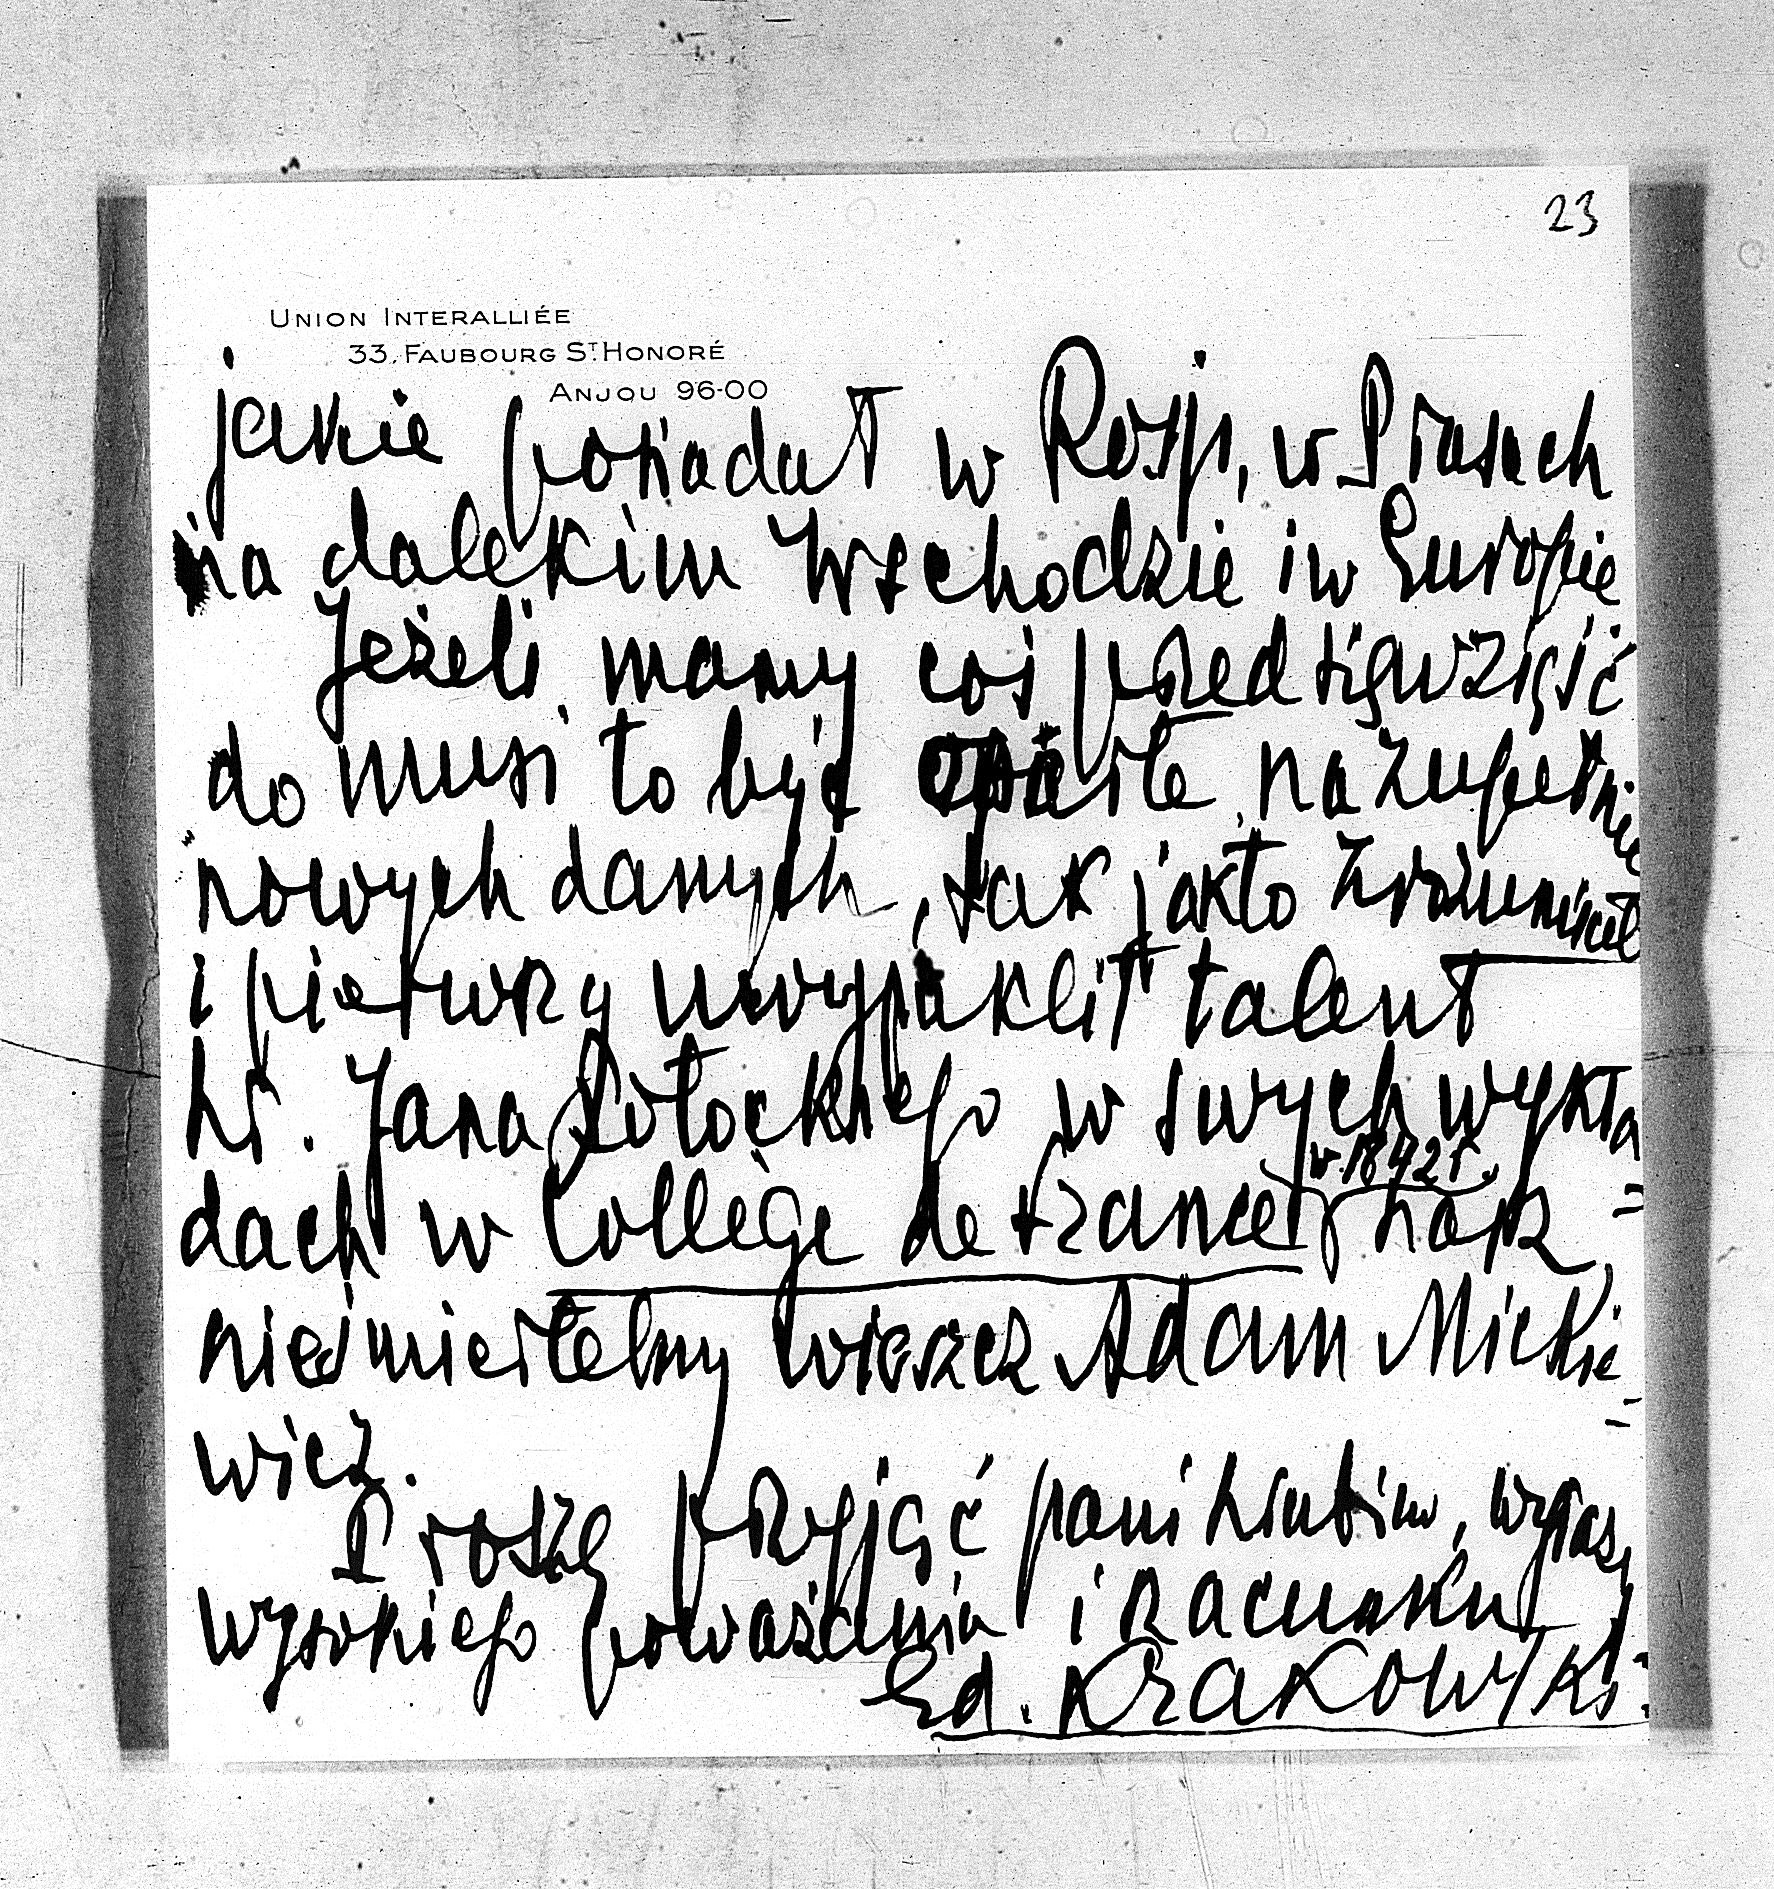 23
UNION INTERALLIÉE
33, FAUBOURG ST. HONORÉ
ANJOU 96-00
jakie posiadał w Rosji, w Prasach
na dalekim Wschodzie i w Europie
Jeżeli mamy coś przedsięwziąść
do musi to być oparte na zupełnie
nowych danych, tak jak to zrozumiał
i pierwszy uwypuklił talent
hr. Jana Potockiego w swych wykła
dach w Collège de France (w 1842 r.)
nieśmiertelny wieszcz Adam Mickie=
wicz.
Proszę przyjąć pani hrabino, wyrazy
wysokiego poważania i szacunku
Ed. Krakowski